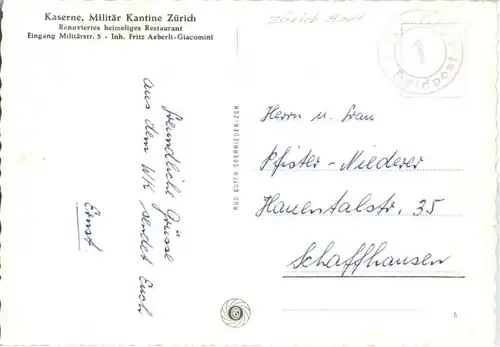 Kaserne, Militär Kantine Zürich
Renoviertes heimeliges Restaurant
Eingang Militärstr. 5 - Inh. Fritz Aeberli-Giacomini
Zürich
1
Feldpost
freundliche Grüsse
aus dem WK sendet Euch
Ernst.
RUD. SUTER OBERRIEDEN-ZCH.
Herrn u. Frau
Pfister-Niederer
Hauentalstr. 35
Schaffhausen